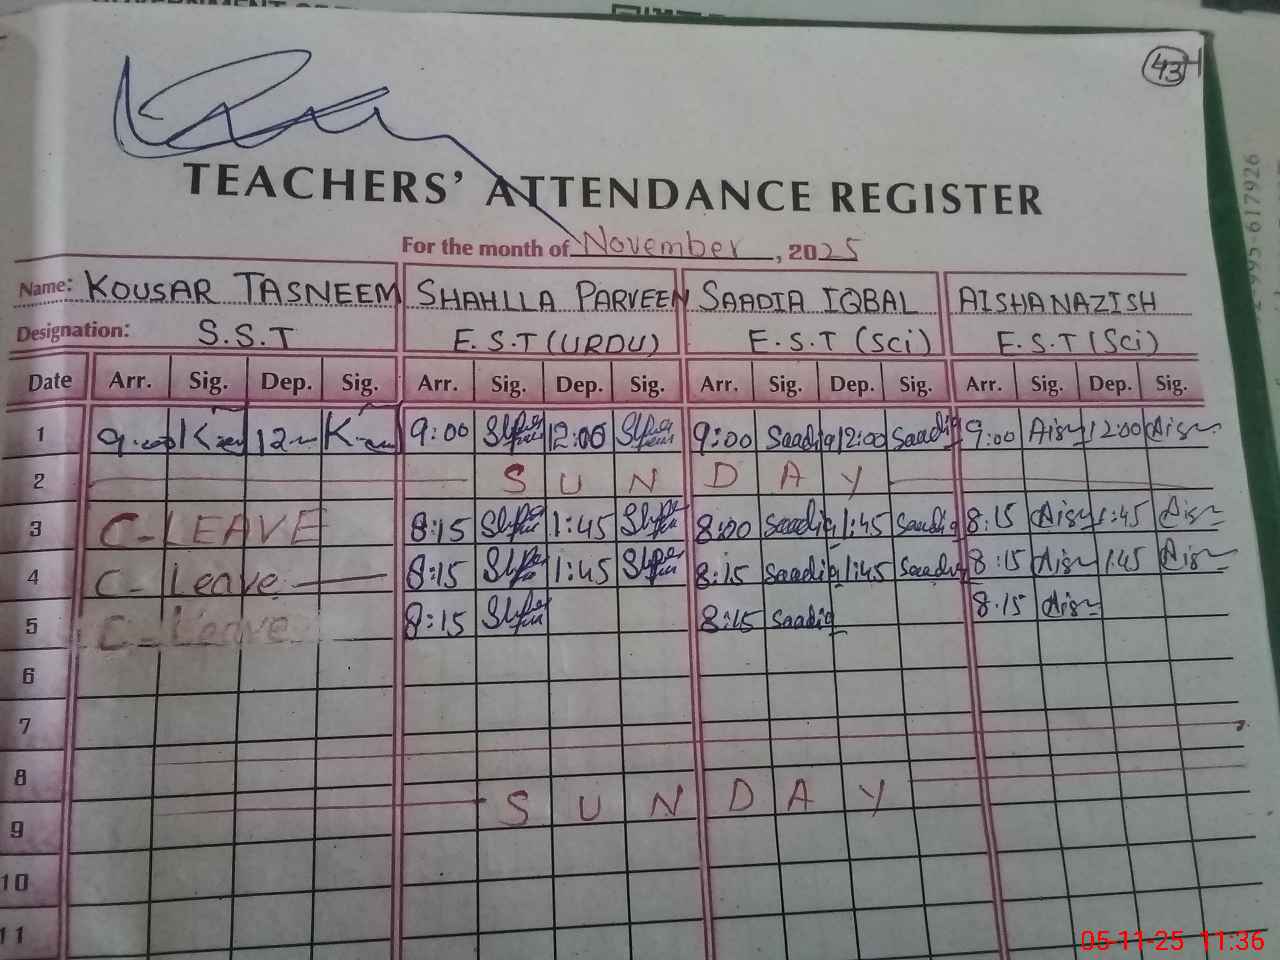 43
TEACHERS' ATTENDANCE REGISTER
For the month of November, 2025
Name: KOUSAR TASNEEM SHAHLLA PARVEEN SAADIA IQBAL AISHA NAZISH
Designation: S.S.T E.S.T (URDU) E.S.T (Sci) E.S.T (Sci)
Date Arr. Sig. Dep. Sig. Arr. Sig. Dep. Sig. Arr. Sig. Dep. Sig. Arr. Sig. Dep. Sig.
1 9:00 9:00 12:00 9:00 Saadia 12:00 Saadia 9:00 12:00
2 SUNDAY
3 C-LEAVE 8:15 1:45 8:00 Saadia 1:45 Saadia 8:15 1:45
4 C-Leave 8:15 1:45 8:15 Saadia 1:45 Saadia 8:15 1:45
5 C-Leave 8:15 8:15 Saadia 8:15
6
7
8
SUNDAY
9
10
11
05-11-25 11:36